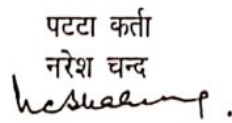 पटटा कर्ता
नरेश चन्द